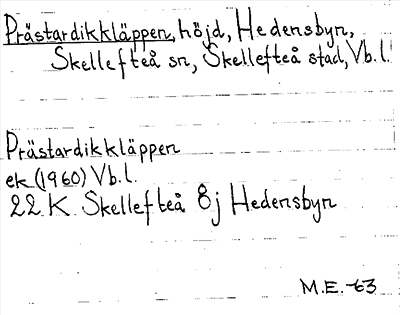 Prästardikkläppen, höjd, Hedensbyn,
Skellefteå sn, Skellefteå stad, Vb.l.
Prästardikkläppen
ek (1960) Vb.l.
22 K Skellefteå 8j Hedensbyn
M.E. -63